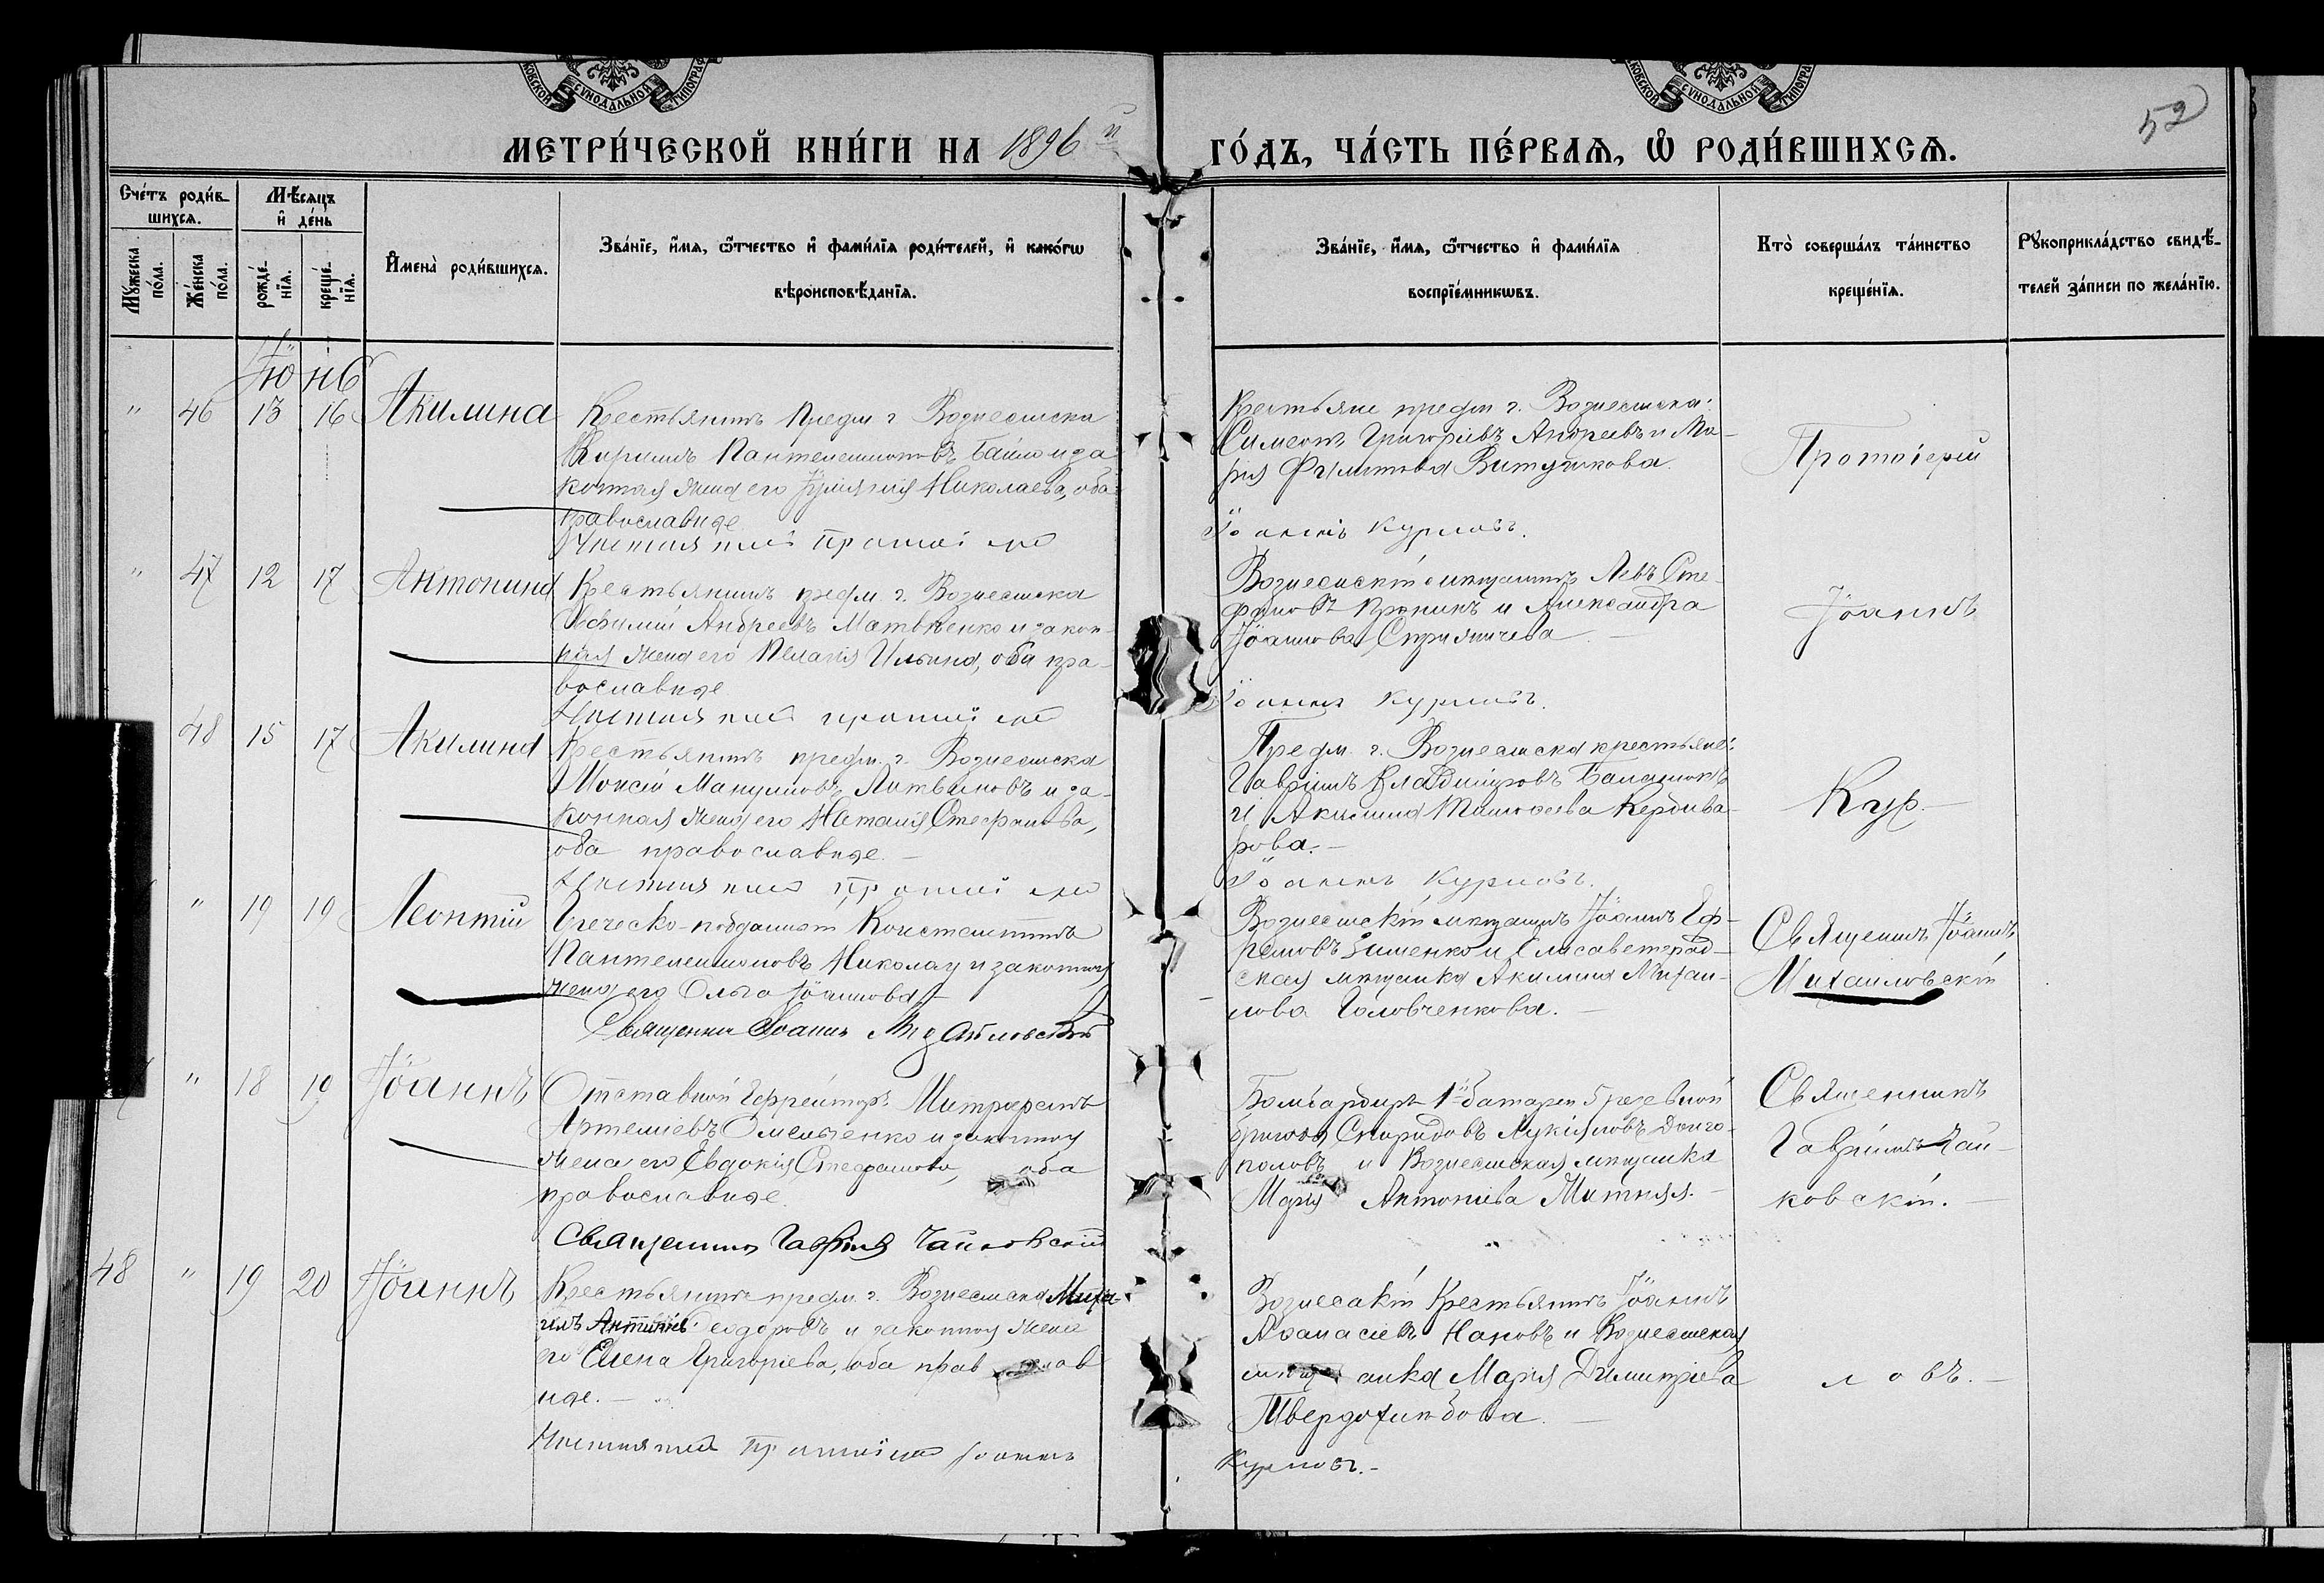 52
МЕТРИ́ЧЕСКОЙ КНИ́ГИ НА 1896 й ГО́ДЪ, ЧА́СТЬ ПЕ́РВАѦ, Ѡ РОДИ́ВШИХСѦ.
Счéтъ роди́в-
шихсѧ.
Мѣ́сяцъ
и де́нь
Мꙋ́жеска
по́ла.
Же́нска
по́ла.
рожде́-
нїѧ.
креще́-
нїѧ.
И҆мена̀ роди́вшихсѧ.
Зва́нїе, и҆́мѧ, ѻ҆́тчество и҆ фами́лїѧ роди́телей, и҆ како́гѡ
вѣроисповѣ́данїѧ.
Зва́нїе, и҆́мѧ, ѻ҆́тчество и҆ фами́лїѧ
воспрїе́мникѡвъ.
Кто̀ соверша́лъ та́инство
креще́нїѧ.
Рꙋкоприкла́дство свидѣ́-
телей за́писи по жела́нїю.
Іюнь
" 46 13 16 Акилина
Крестьянинъ предм г Вознесенска
Кириллъ Пантелеимоновъ и за
конная жена его Николаева, оба
православные
Крестьяне предм г. Вознесенска:
Симеонъ Григоріевъ Андреевъ и Ма-
рія Филиппова
Протоіерей
Іоаннъ Курловъ.
" 47 12 17 Антонина
Крестьянинъ предм. г. Вознесенска
Евфимій Андреевъ Матвѣенко и закон-
ная жена его Пелагія Ильина, оба пра-
вославные
Вознесенскій мѣщанинъ Левъ Сте-
фановъ и Александра
Іоаннова
Іоаннъ
Іоаннъ Курловъ.
48 15 17 Акилина
Крестьянинъ предм. г. Вознесенска
Моисей Мануиловъ Литвиновъ и за-
конная жена его Наталія Стефанова,
оба православные. -
Предм. г. Вознесенска крестьяне:
Гавріилъ Владиміровъ
и Акилина Тимофеева
рова. -
Кур-
Іоаннъ Курловъ.
" 19 19 Леонтій
Греческо-подданный Константинъ
Пантелеимоновъ Николау и законная
жена его Ольга Іоаннова
Священникъ Іоаннъ Михайловскій
Вознесенскій мѣщанинъ Іоаннъ Еф-
ремовъ Зименко и Елисаветград-
ская мѣщанка Акилина Михаи-
лова Головченкова. -
Священникъ Іоаннъ
Михайловскій
" 18 19 Іоаннъ
Отставной Ефрейторъ Митрофанъ
Артеміевъ Омельченко и законная
жена его Евдокія Стефанова, оба
православные.
Священникъ Гавріилъ Чайковскій
Бомбардиръ 1й батареи 5
бригады Спиридонъ Лукіановъ Долго-
половъ и Вознесенская мѣщанка
Марія Антоніева
Священникъ
Гавріилъ Чай-
ковскій.
48 " 19 20 Іоаннъ
Крестьянинъ предм. г. Вознесенска Миха-
илъ Ѳеодоровъ и законная жена
его Елена Григоріева, оба православ
ные. -
Вознесенскій Крестьянинъ Іоаннъ
Аѳанасіевъ и Вознесенская
мѣщанка Марія Димитріева
Твердохлѣбова. -
ловъ. -
Іоаннъ Курловъ. -